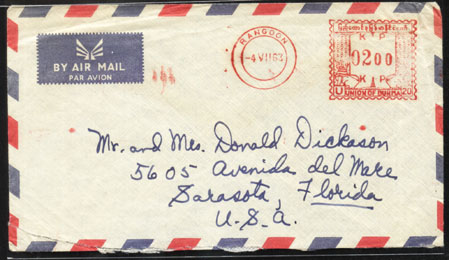 BY AIR MAIL
PAR AVION
RANGOON
-4 VII 63
K P
0200
K P
UNION OF BURMA
Mr. and Mrs. Donald Dickason
5605 Avenida del Mare
Sarasota, Florida
U.S.A.